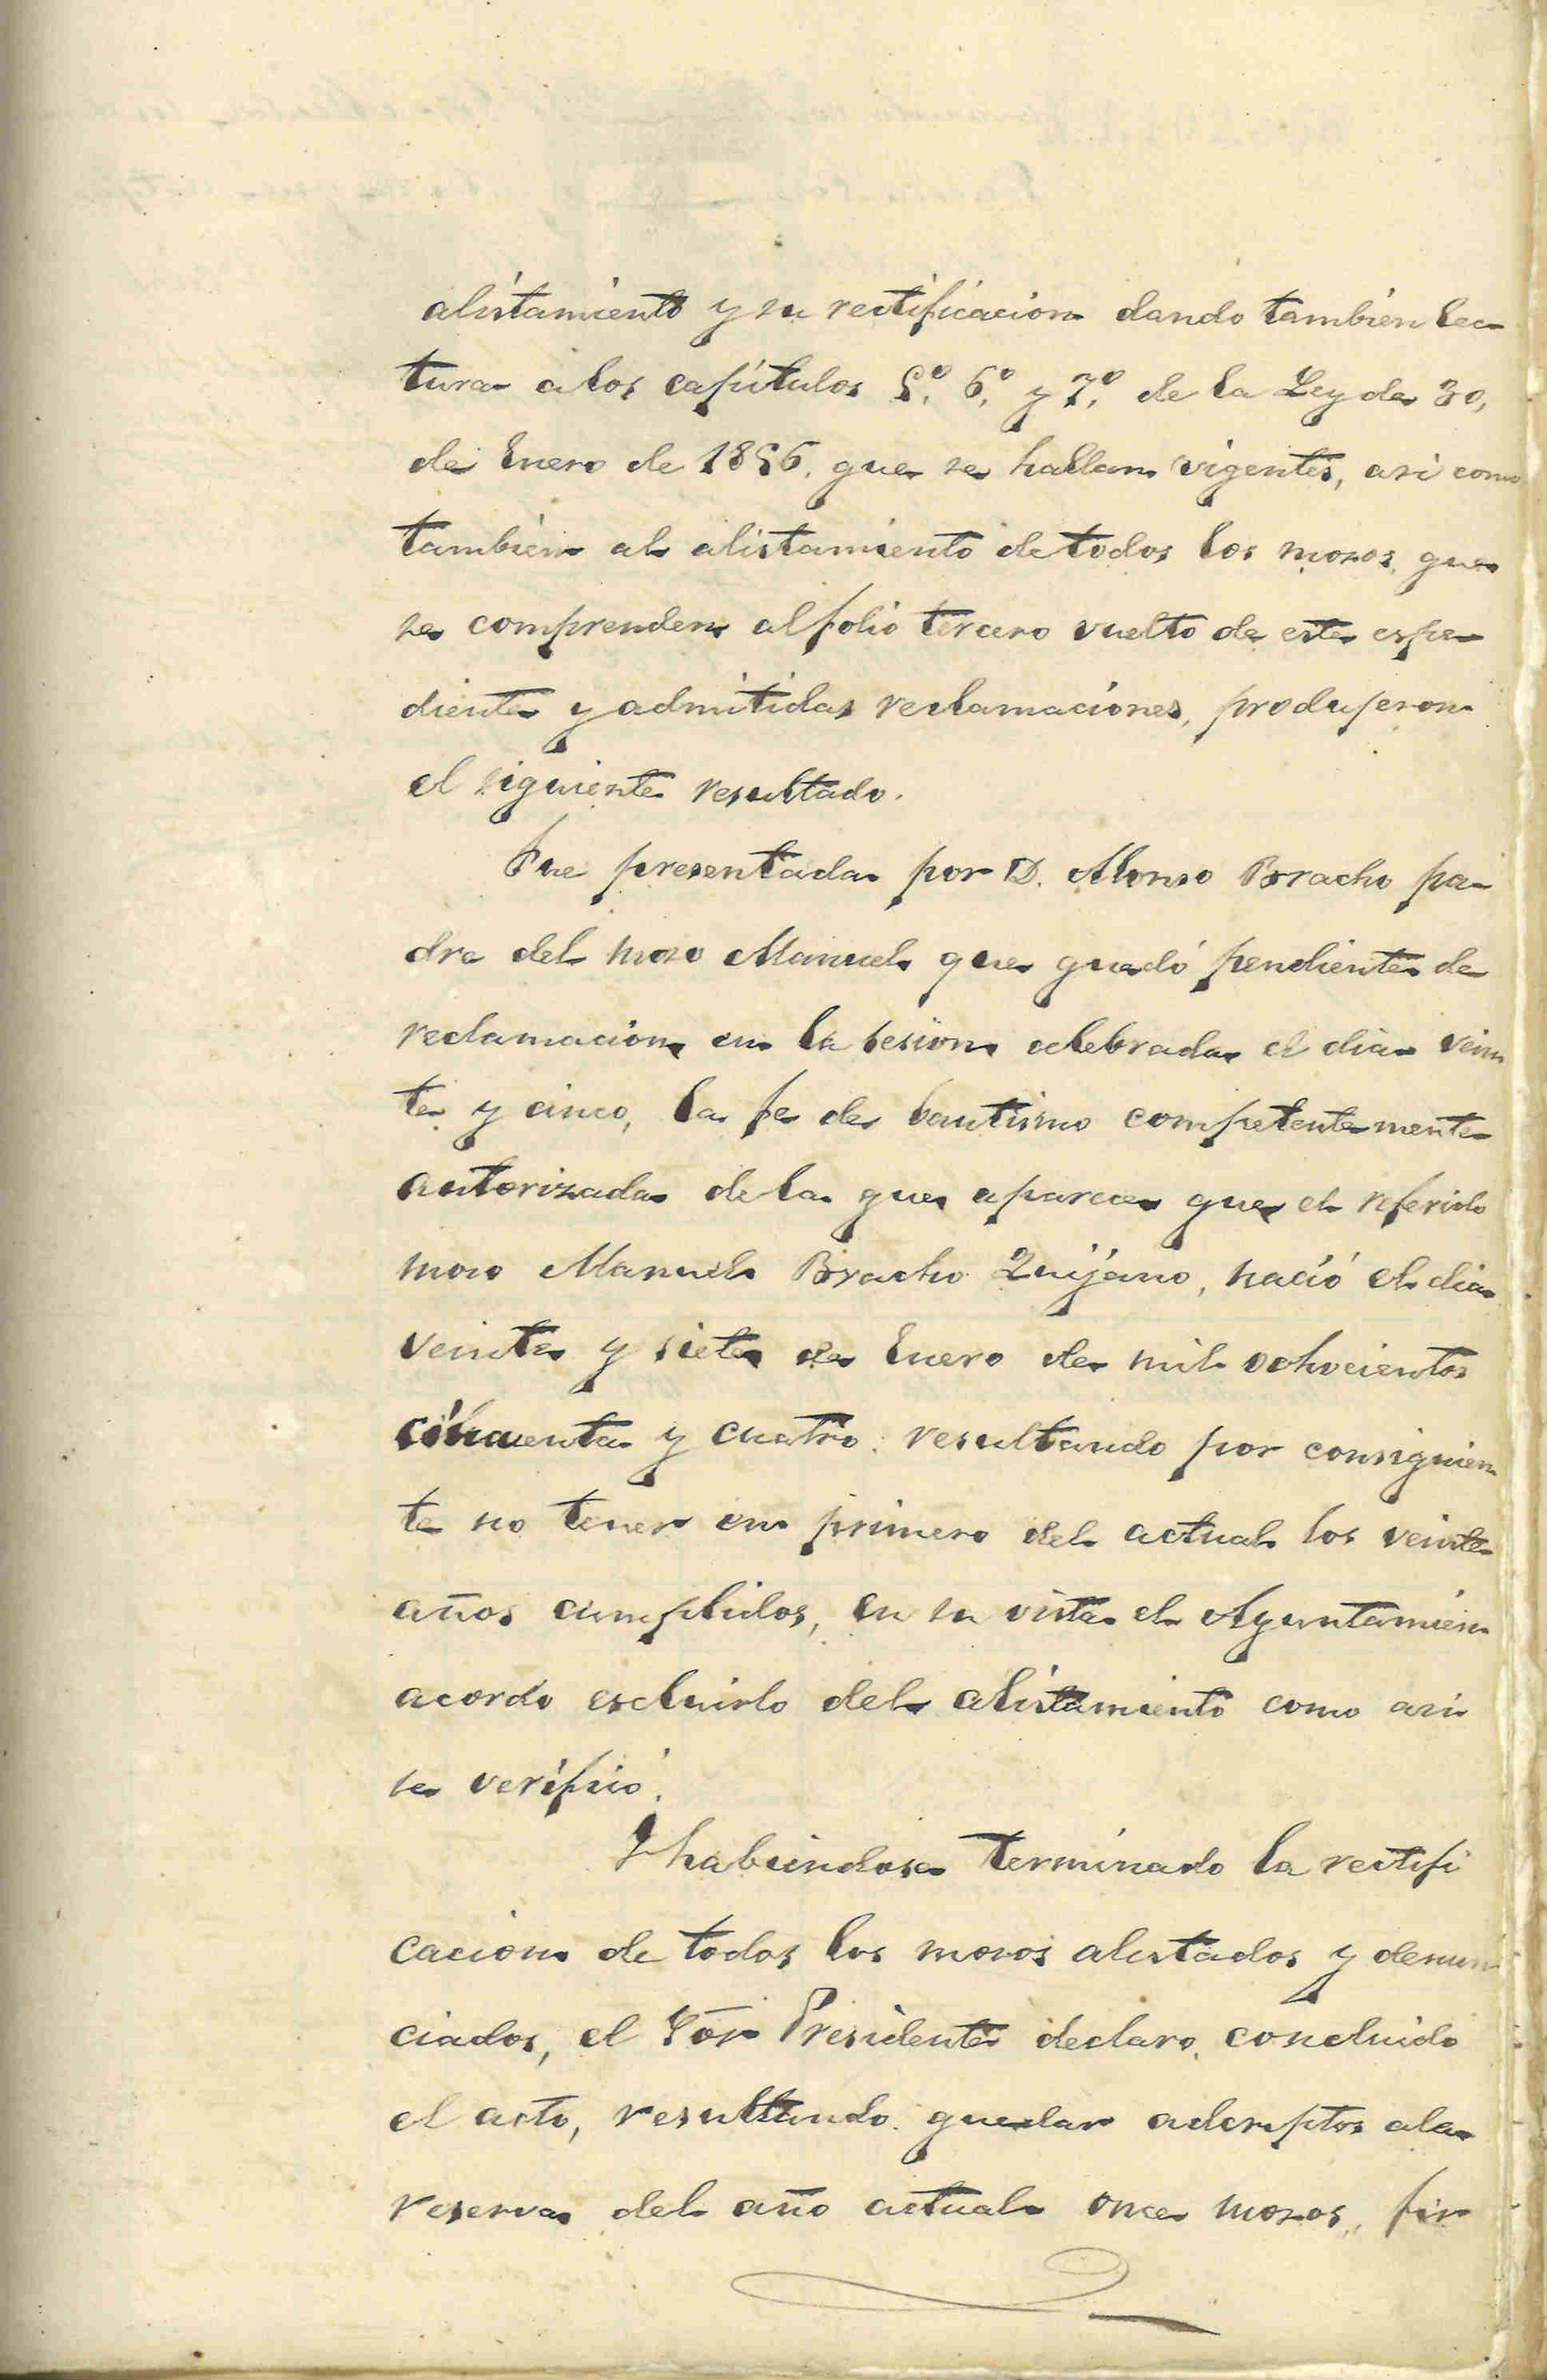 alistamiento y su rectificacion dando tambien lec-
tura a los capitulos 5.º 6.º y 7.º de la Ley de 30,
de Enero de 1856. que se hallan vigentes, asi como
tambien al alistamiento de todos los mozos que
se comprenden al folio tercero vuelto de este espe-
diente y admitidas reclamaciones, produjeron
el siguiente resultado.
Fue presentada por D. Alonso Bracho pa-
dre del mozo Manuel que quedó pendiente de
reclamacion en la sesion celebrada el dia vein
te y cinco, la fe de bautismo competentemente
autorizada de la que aparece que el referido
mozo Manuel Bracho Quijano, nació el dia
veinte y siete de Enero de mil ochocientos
cincuenta y cuatro: resultando por consiguien
te no tener en primero del actual los veinte
años cumplidos, en su vista el Ayuntamien
acordo escluirlo del alistamiento como asi
se verificó.
Y habiendose terminado la rectifi
cacion de todos los mozos alistados y denun
ciados, el Sōr Presidente declaro concluido
el acto, resultando quedar adscriptos a la
reserva del año actual once mozos, fir